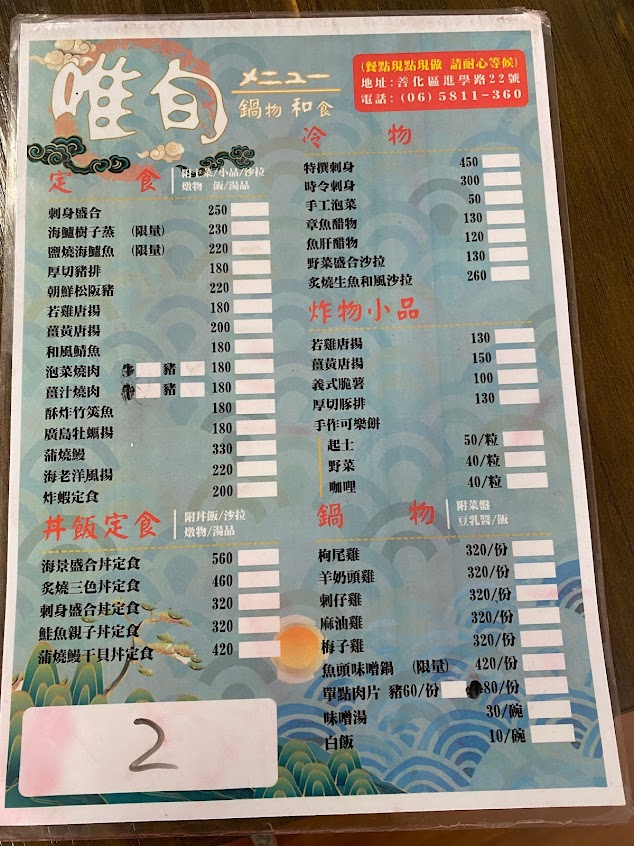 唯旬
メニュー
鍋物 和食
(餐點現點現做 請耐心等候)
地址:善化區進學路22號
電話:(06)5811-360
定食
附主菜/小品/沙拉
燉物 飯/湯品
刺身盛合 250
海鱺樹子蒸 (限量) 230
鹽燒海鱺魚 (限量) 220
厚切豬排 180
朝鮮松阪豬 220
若雞唐揚 180
薑黃唐揚 200
和風鯖魚 180
泡菜燒肉 豬 180
薑汁燒肉 豬 180
酥炸竹筴魚 180
廣島牡蠣揚 180
蒲燒鰻 330
海老洋風揚 220
炸蝦定食 200
丼飯定食
附丼飯/沙拉
燉物/湯品
海景盛合丼定食 560
炙燒三色丼定食 460
刺身盛合丼定食 320
鮭魚親子丼定食 320
蒲燒鰻干貝丼定食 420
2
冷物
特撰刺身 450
時令刺身 300
手工泡菜 50
章魚醋物 130
魚肝醋物 120
野菜盛合沙拉 130
炙燒生魚和風沙拉 260
炸物小品
若雞唐揚 130
薑黃唐揚 150
義式脆薯 100
厚切豚排 130
手作可樂餅
起士 50/粒
野菜 40/粒
咖哩 40/粒
鍋物
附菜盤
豆乳醬/飯
枸尾雞 320/份
羊奶頭雞 320/份
刺仔雞 320/份
麻油雞 320/份
梅子雞 320/份
魚頭味噌鍋 (限量) 420/份
單點肉片 豬60/份 80/份
味噌湯 30/碗
白飯 10/碗